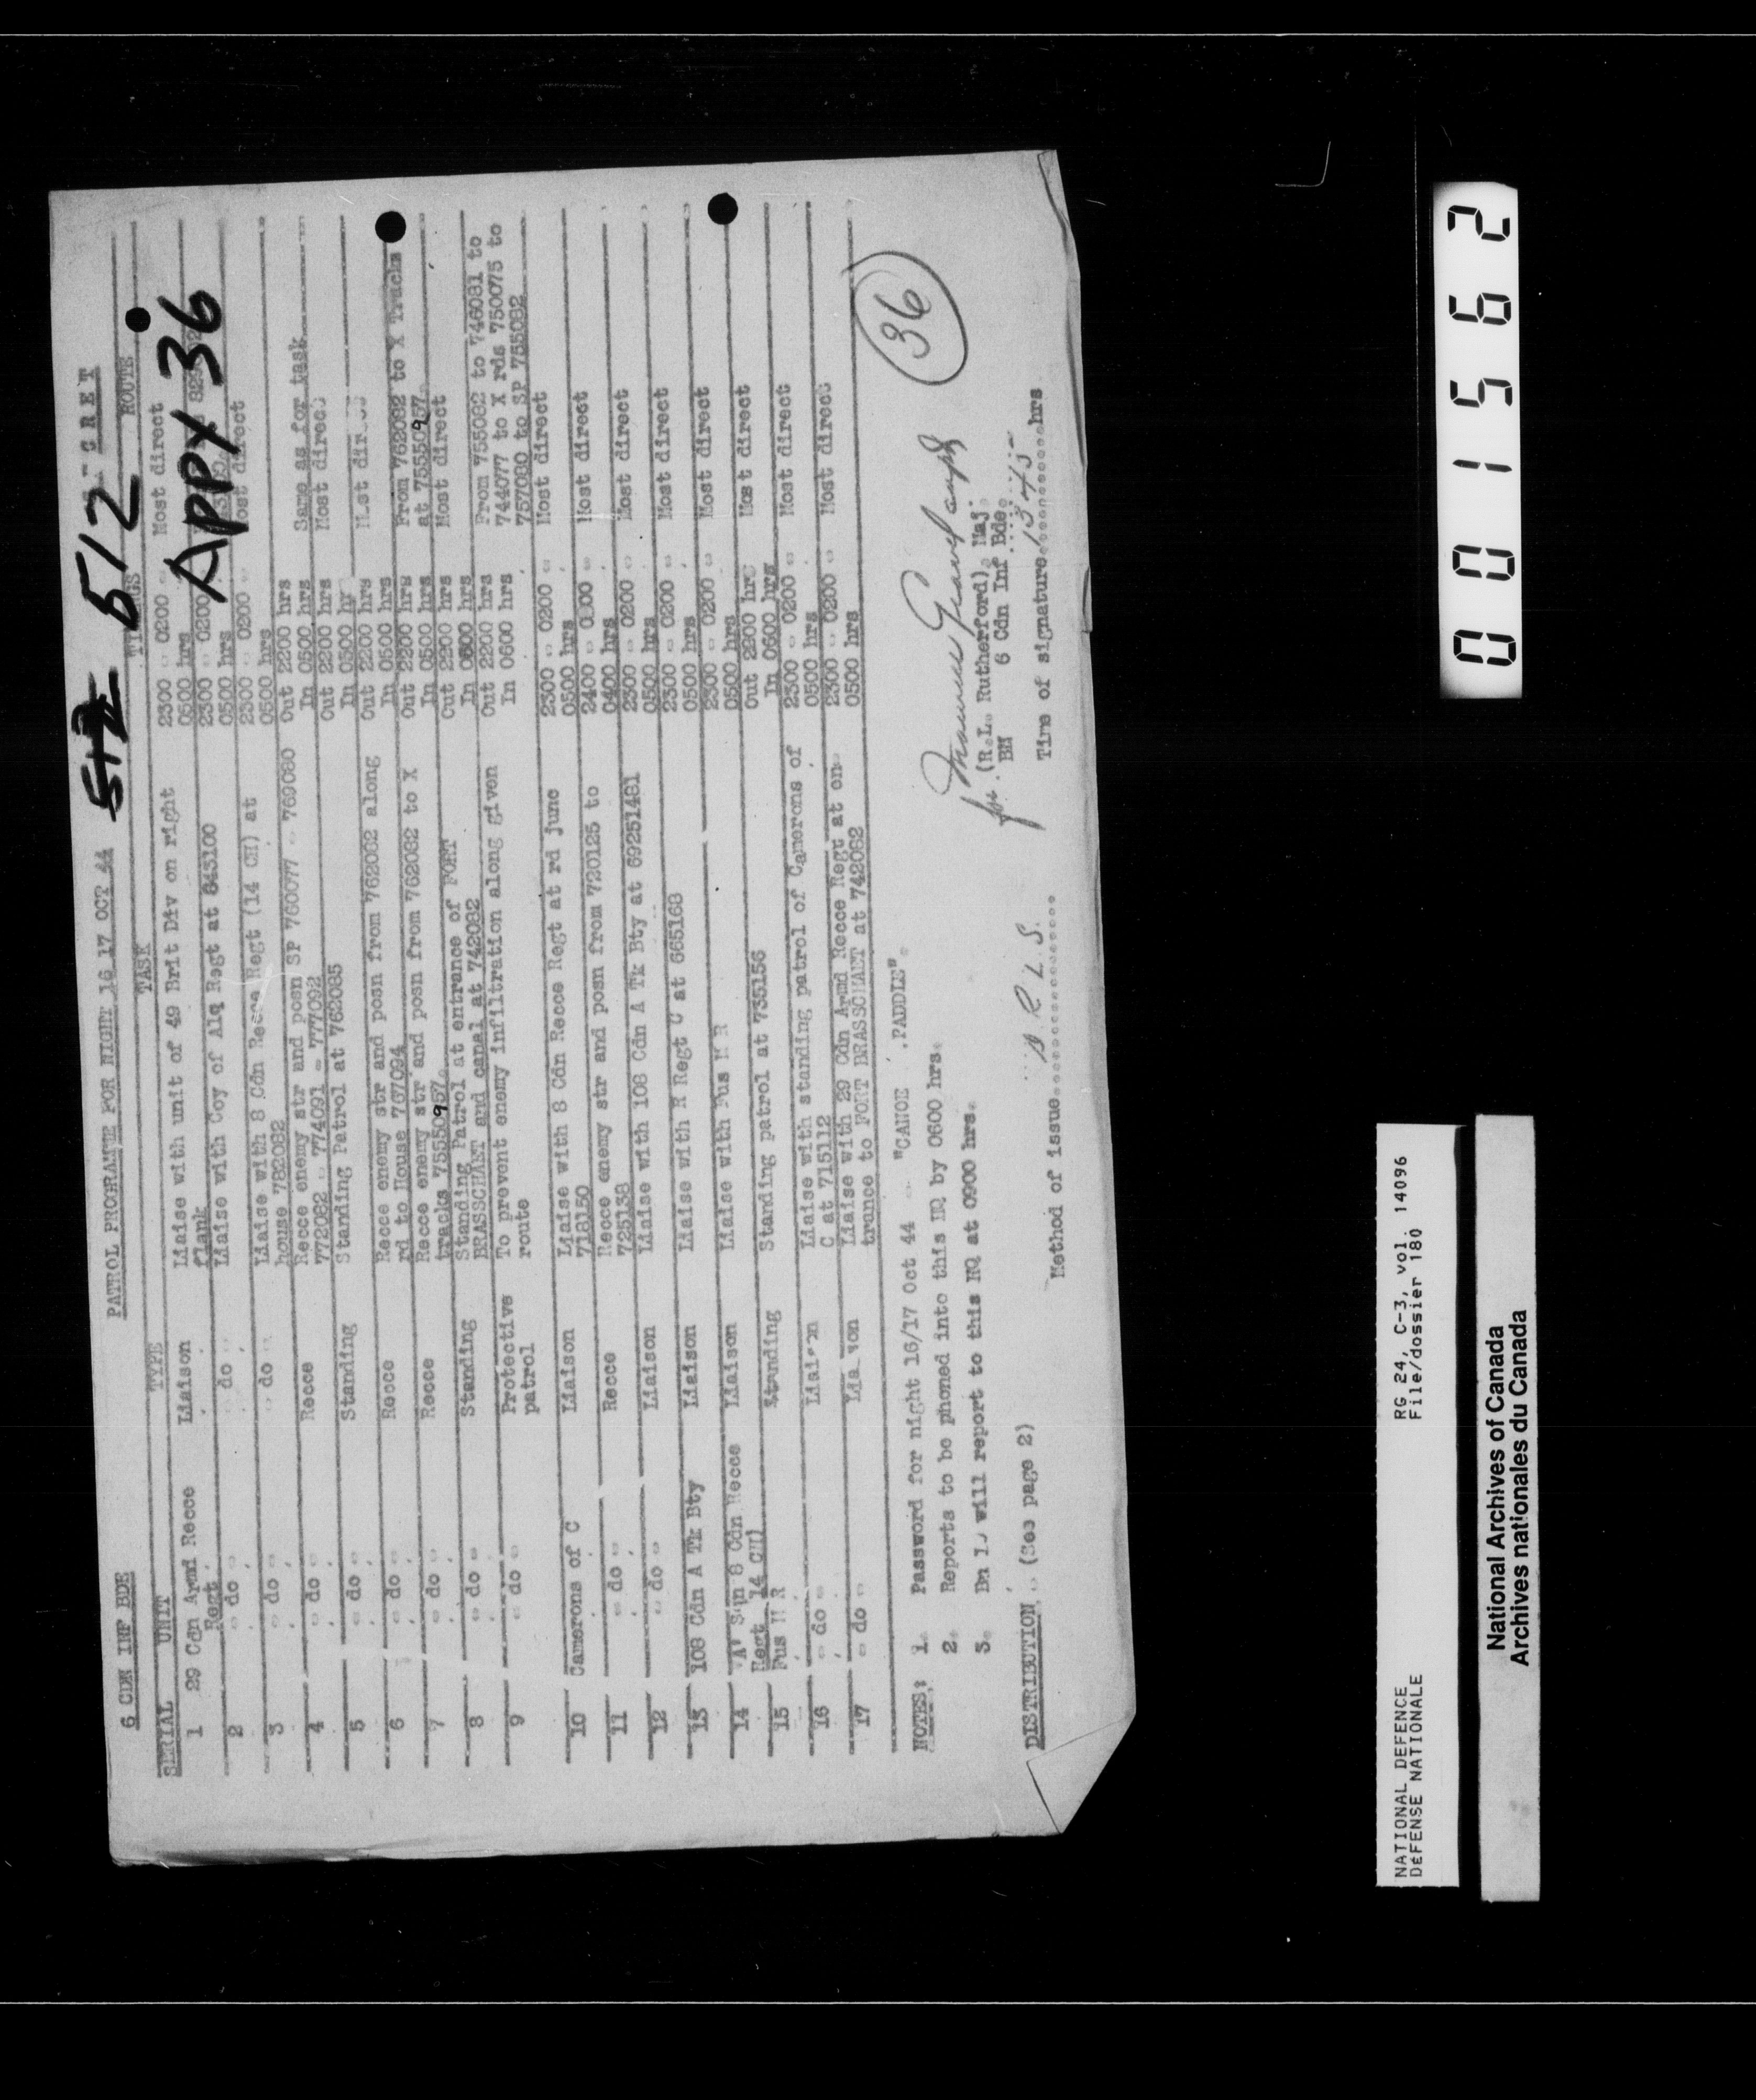 6 CDN INF BDE PATROL PROGRAMME FOR NIGHT 16 17 OCT 44 512 512 SECRET
APPX 36
SERIAL UNIT TYPE TASK TIMINGS ROUTE
1 29 Cdn Armd Recce Liaison Liaise with unit of 49 Brit Div on right 2300 - 0200 - Most direct
Regt flank 0500 hrs
2 - do - - do - Liaise with Coy of Alq Regt at 843100 2300 - 0200
0500 hrs
3 - do - - do - Liaise with 8 Cdn Recce Regt (14 CH) at 2300 - 0200 - Most direct
house 782082 0500 hrs
4 - do - Recce Recce enemy str and posn SP 760077 - 769080 Out 2200 hrs Same as for task
772082 - 774091 - 777092 In 0500 hrs
5 - do - Standing Standing Patrol at 762085 Out 2200 hrs Most direct
In 0500 hr
6 - do - Recce Recce enemy str and posn from 762082 along Out 2200 hrs Most direct
rd to House 767094 In 0500 hrs
7 - do - Recce Recce enemy str and posn from 762082 to X Out 2200 hrs From 762082 to X Tracks
tracks 75550957. In 0500 hrs at 75550957.
8 - do - Standing Standing Patrol at entrance of FORT Out 2200 hrs Most direct
BRASSCHAET and canal at 742082 In 0600 hrs
9 - do - Protective To prevent enemy infiltration along given Out 2200 hrs From 755082 to 746081 to
patrol route In 0600 hrs 744077 to X rds 750075 to
757080 to SP 755082
10 Camerons of C Liaison Liaise with 8 Cdn Recce Regt at rd junc 2300 - 0200 - Most direct
718150 0500 hrs
11 - do - Recce Recce enemy str and posn from 720125 to 2400 - Most direct
725138 0400 hrs
12 - do - Liaison Liaise with 108 Cdn A Tk Bty at 69251481 2300 - 0200 - Most direct
0500 hrs
13 108 Cdn A Tk Bty Liaison Liaise with R Regt C at 665168 2300 - 0200 - Most direct
0500 hrs
14 'A' Sqn 8 Cdn Recce Liaison Liaise with Fus M R 2300 - 0200 - Most direct
Regt 14 CH) 0500 hrs
15 Fus M R Standing Standing patrol at 735156 Out 2200 hrs Most direct
In 0600 hrs
16 - do - Liaison Liaise with standing patrol of Camerons of 2300 - 0200 - Most direct
C at 715112 0500 hrs
17 - do - Liaison Liaise with 29 Cdn Armd Recce Regt at en- 2300 - 0200 - Most direct
trance to FORT BRASSCHAET at 742082 0500 hrs
NOTES: 1. Password for night 16/17 Oct 44 - "CANOE PADDLE".
2. Reports to be phoned into this HQ by 0600 hrs.
3. Bn LO will report to this HQ at 0900 hrs.
36
for (R.L. Rutherford) Maj.
BM 6 Cdn Inf Bde.
DISTRIBUTION - (See page 2)
Method of issue D R L S. Time of signature 1345 hrs
001562
NATIONAL DEFENCE RG 24, C-3, vol. 14096
DÉFENSE NATIONALE File/dossier 180
National Archives of Canada
Archives nationales du Canada